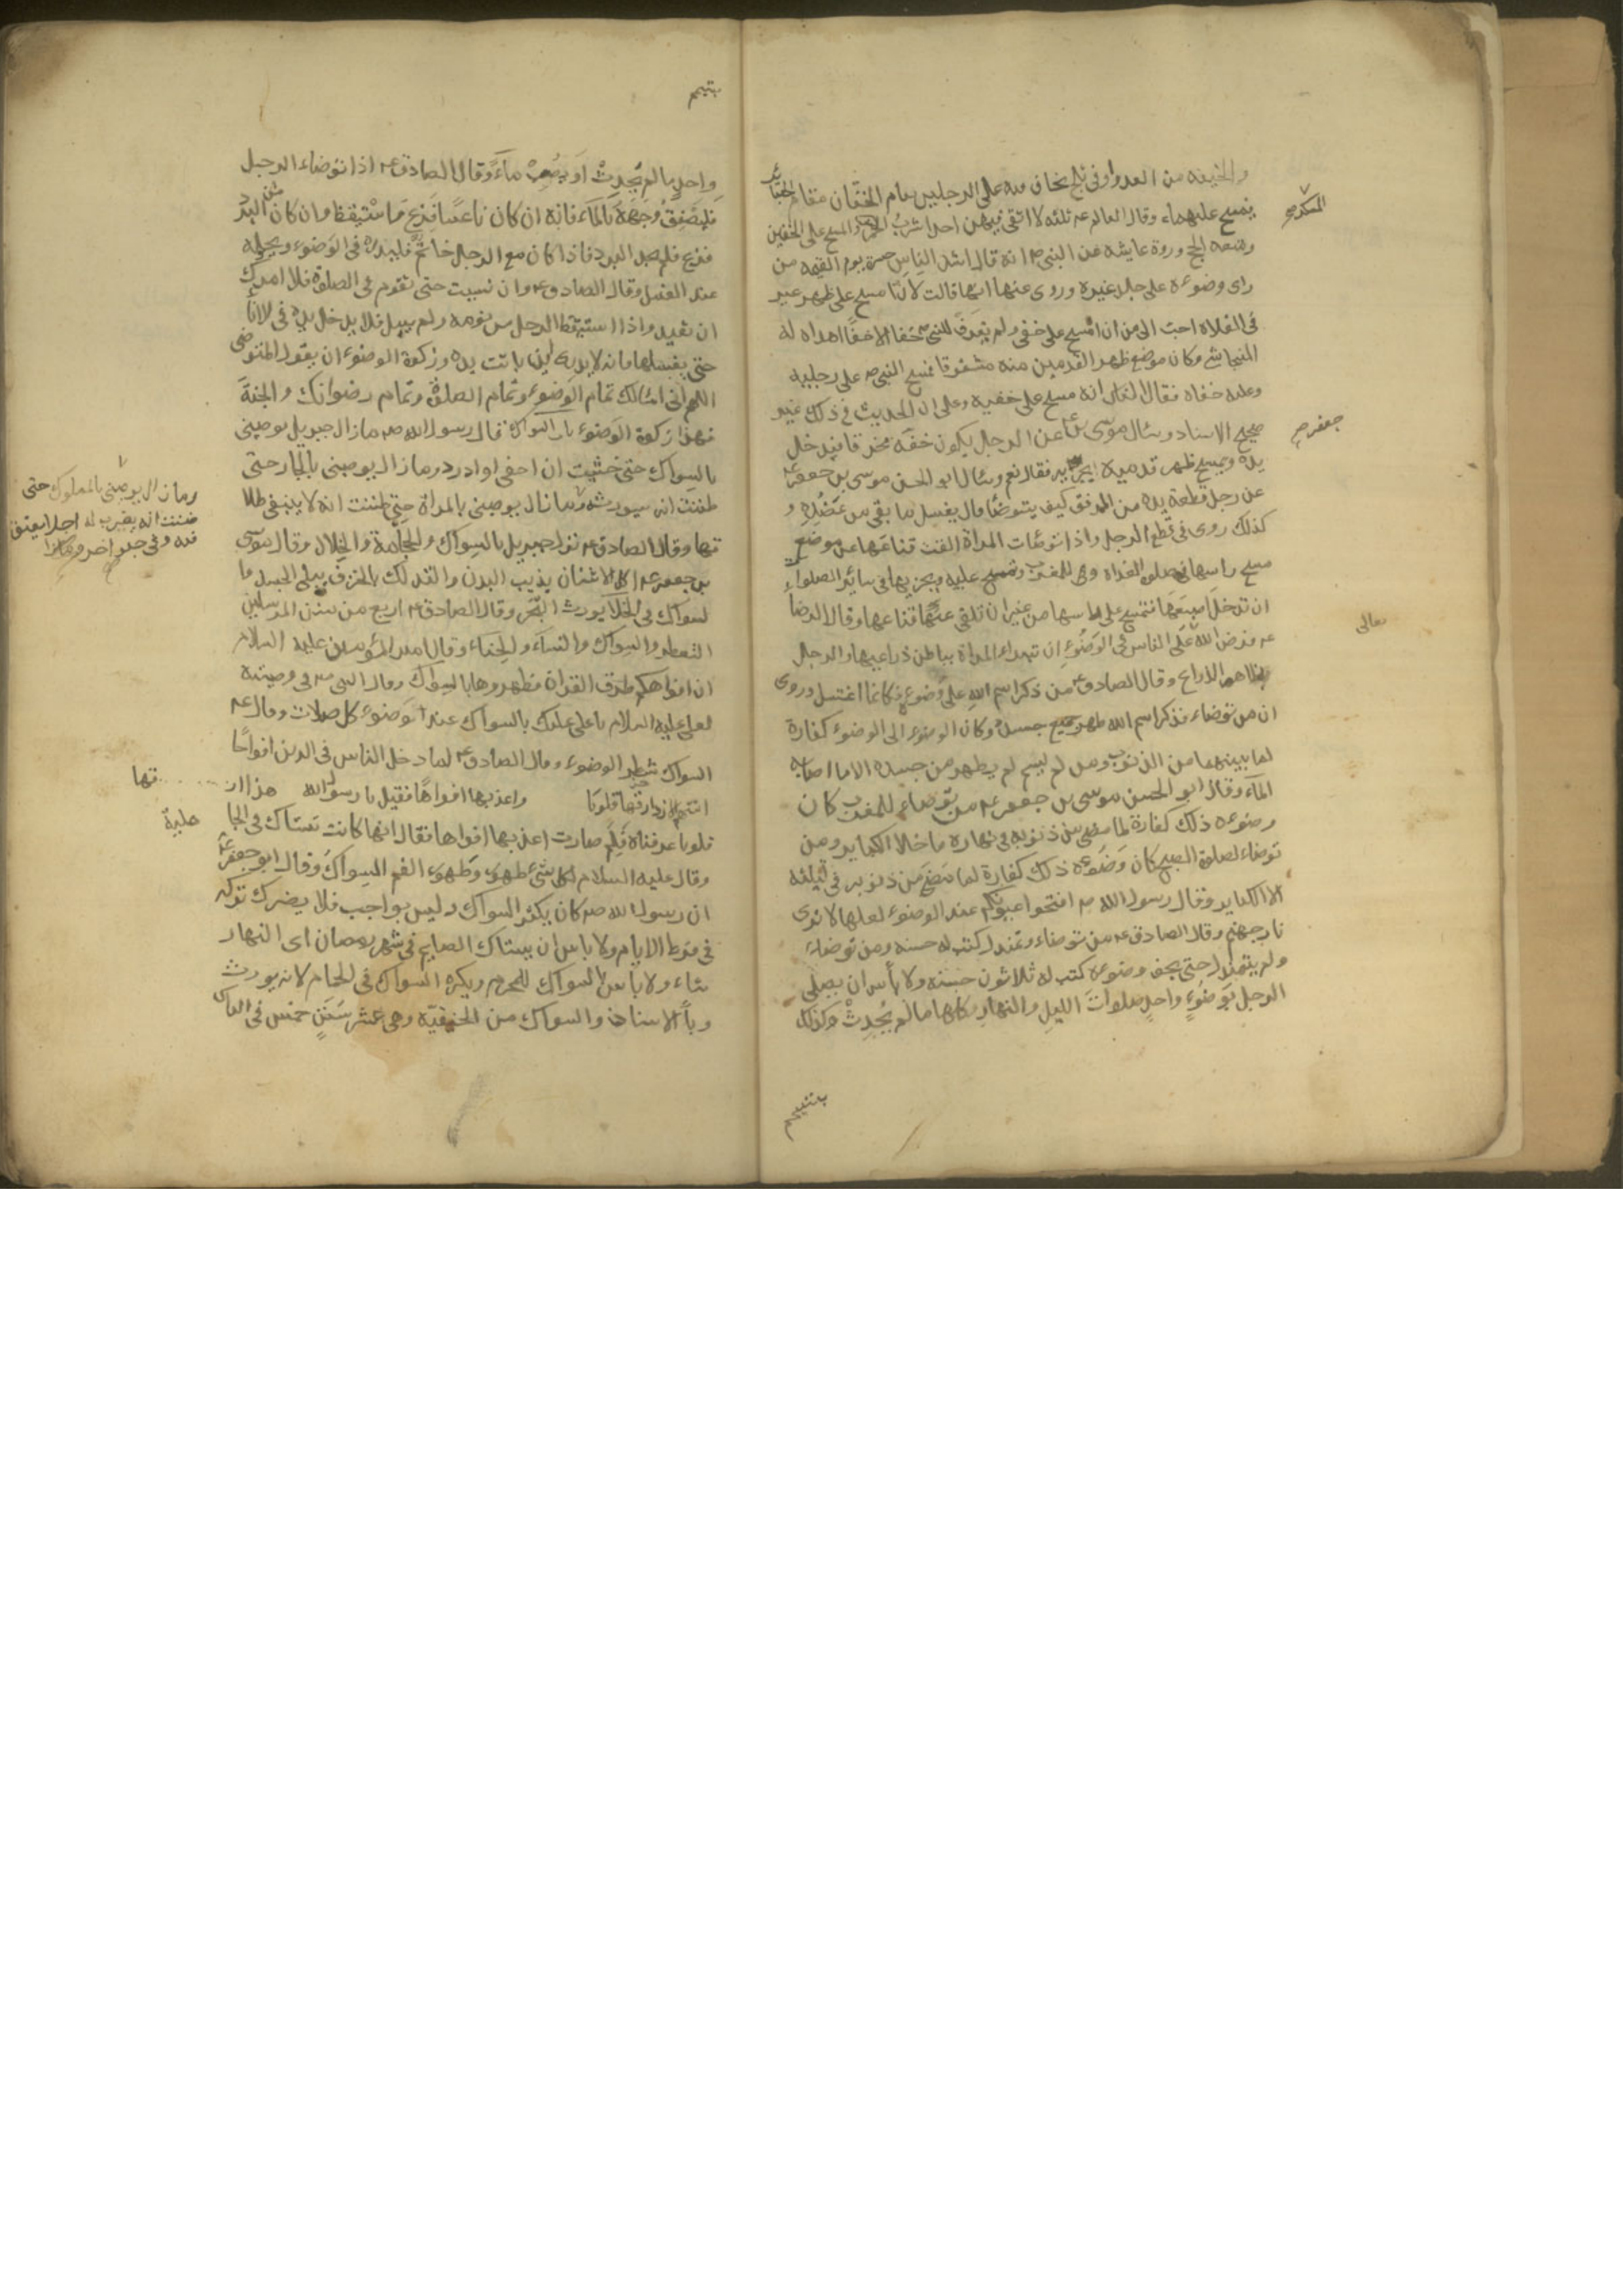 والخيفه من العدو او في ثلج يخاف فيه على الرجلين يقام الخفّان مقام الجبائر
المسكر صح
فيمسح عليهما وقال العالم عه ثلثه لا اتقى فيهن احدا شرب الخمر والمسح على الخفين
ومتعه الحج وروة عايشه عن النبي ص انه قال اشد الناس حسرة يوم القيمه من
راى وضوءه على جلد غيره وروى عنها انها قالت لانّا مسح على ظهر عير
في الفلاة احبّ الى من ان امسح على خفى ولم يعرف للنبى ص خفا الا خفًا اهداه له
النجاشى وكان موضع ظهر القدمين منه مشقوقا فمسح النبى ص على رجليه
وعليه خفاه فقال الناس انه مسح على خفيه وعلى ان الحديث في ذلك غير
صحيح الاسناد وسئال موسى بن عن الرجل يكون خفّه مخرقا فيدخل
جعفر صح
يده ويمسح ظهر قدميه ايجزيه فقال نعم وسئال ابو الحسن موسى بن جعفر عه
عن رجل قطعة يده من المرفق كيف يتوضّا قال يغسل ما بقى من عَضُدِهِ و
كذلك روى فى قطع الرجل واذا توضّات المراة القت قناعها عن موضع
مسح راسها فى صلوه الغداة وهى المغرب وتمسح عليه ويجزيها في سائر الصلوات
ان تدخل اصبعها فتمسح على راسها من غير ان تلقى عنها قناعها وقال الرضا
عه فرض الله على الناس في الوَضُوءِ ان تبداء المراة بباطن ذراعيها والرجل
تعالى
بظاهر الذراع وقال الصادق عه من ذكر اسم الله على وَضوءِهِ فكانما اغتسل وروى
ان من توضاء فذكر اسم الله طهر جميع جسده وكان الوضوء الى الوضوء كفارة
لما بينهما من الذنوب ومن لم يسم لم يطهر من جسده الا ما اصابه
المآء وقال ابو الحسن موسى بن جعفر عه من توضاء للمغرب كان
وضوءه ذلك كفارة لما مضى من ذنوبه فى نهاره ما خالا الكباير ومن
توضاء لصلوة الصبح كان وَضوءه ذلك كفارة لما مضى من ذنوبه في ليلته
الا الكباير وقال رسول الله ص افتحوا عيونكم عند الوضوء لعلها لا ترى
نار جهنم وقال الصادق عه من توضاء وتمندل كتب له حسنه ومن توضاء
ولم يتمندل حتى يجف وضوءه كتب له ثلاثون حسنة ولا باس ان يصلى
الرجل بوَضُوءٍ واحدٍ صلواتَ الليلِ والنهارِ كلها ما لم يُحدِثْ وكذلك
بتيمم
بتيمم
واحدٍ ما لم يُحدِثْ اَو يُصِبْ مآءً وقال الصادق عه اذا توضاء الرجل
فليصَفِقْ وَجهَهُ بالمآء فانه ان كان ناعسًا فَزِعَ فاستيقظ وان كان البرد
فزع فلم يجد البرد فاذا كان مع الرجل خاتمٌ فليدره في الوَضوء ويحوله
عند الغسل وقال الصادق عه وان نسيت حتى تقوم في الصلوة فلا امرك
ان تعيد واذا استيقظ الرجل من نومه ولم يبل فلا يدخل يده في الانا
حتى يغسلها فانه لا يدرى اين باتت يده وزكوة الوضوء ان يقول المتوضى
اللهم انى اسالك تمام الوَضوء وتمام الصلوة وتمام رضوانك والجنة
فهذا زكوة الوَضوء باب السواك قال رسول الله ص ما زال جبريل يوصينى
بالسواك حتى خشيت ان احفى او ادرد وما زال يوصينى بالجار حتى
ظننت انه سيورثه وما زال يوصينى بالمراة حتى ظننت انه لا ينبغي طلا
وما زال يوصينى بالمملوك حتى
ظننت انه يضرب له اجلا يعتق
فيه وفى
قها وقال الصادق عه نزل جبريل بالسواك والحجامة والخلال وقال موسى
بن جعفر عه اكل الاشنان يذيب البدن والتدلك بالخزف يبلى الجسد وا
لسواك في الخلآ يورث البَخَر وقال الصادق عه اربع من سنن المرسلين
التعطر والسواك والنسآء والحناء وقال امير المؤمنين عليه السلام
ان افواهكم طرق القراة فطهروها بالسواك وقال النبى ص فى وصيته
لعلى عليه السلام يا على عليك بالسواك عند وَضوء كل صلات وقال عه
السواك شطر الوضوء وقال الصادق عه لما دخل الناس في الدين افواجًا
اتتهم الازد ارقها قلوبًا واعذبها افواهًا فقيل يا رسول الله هذا ار قها
قلوبا عرفناه فلِمَ صارت اعذبها افواها فقال انها كانت تستاك فى الجا هلية
وقال عليه السلام لكل شئ طهور وطهور الفم السواك وقال ابو جعفر عه
ان رسول الله ص كان يكثر السواك وليس بواجب فلا يضرك تركه
فى فرط الايام ولا باس ان يستاك الصايم في شهر رمضان اى النهار
شاء ولا باس بالسواك للمحرم ويكره السواك فى الحمام لانه يورث
وبآ الاسنان والسواك من الحنيفيّة وهى عشر سُنَنٍ خمس فى الراس